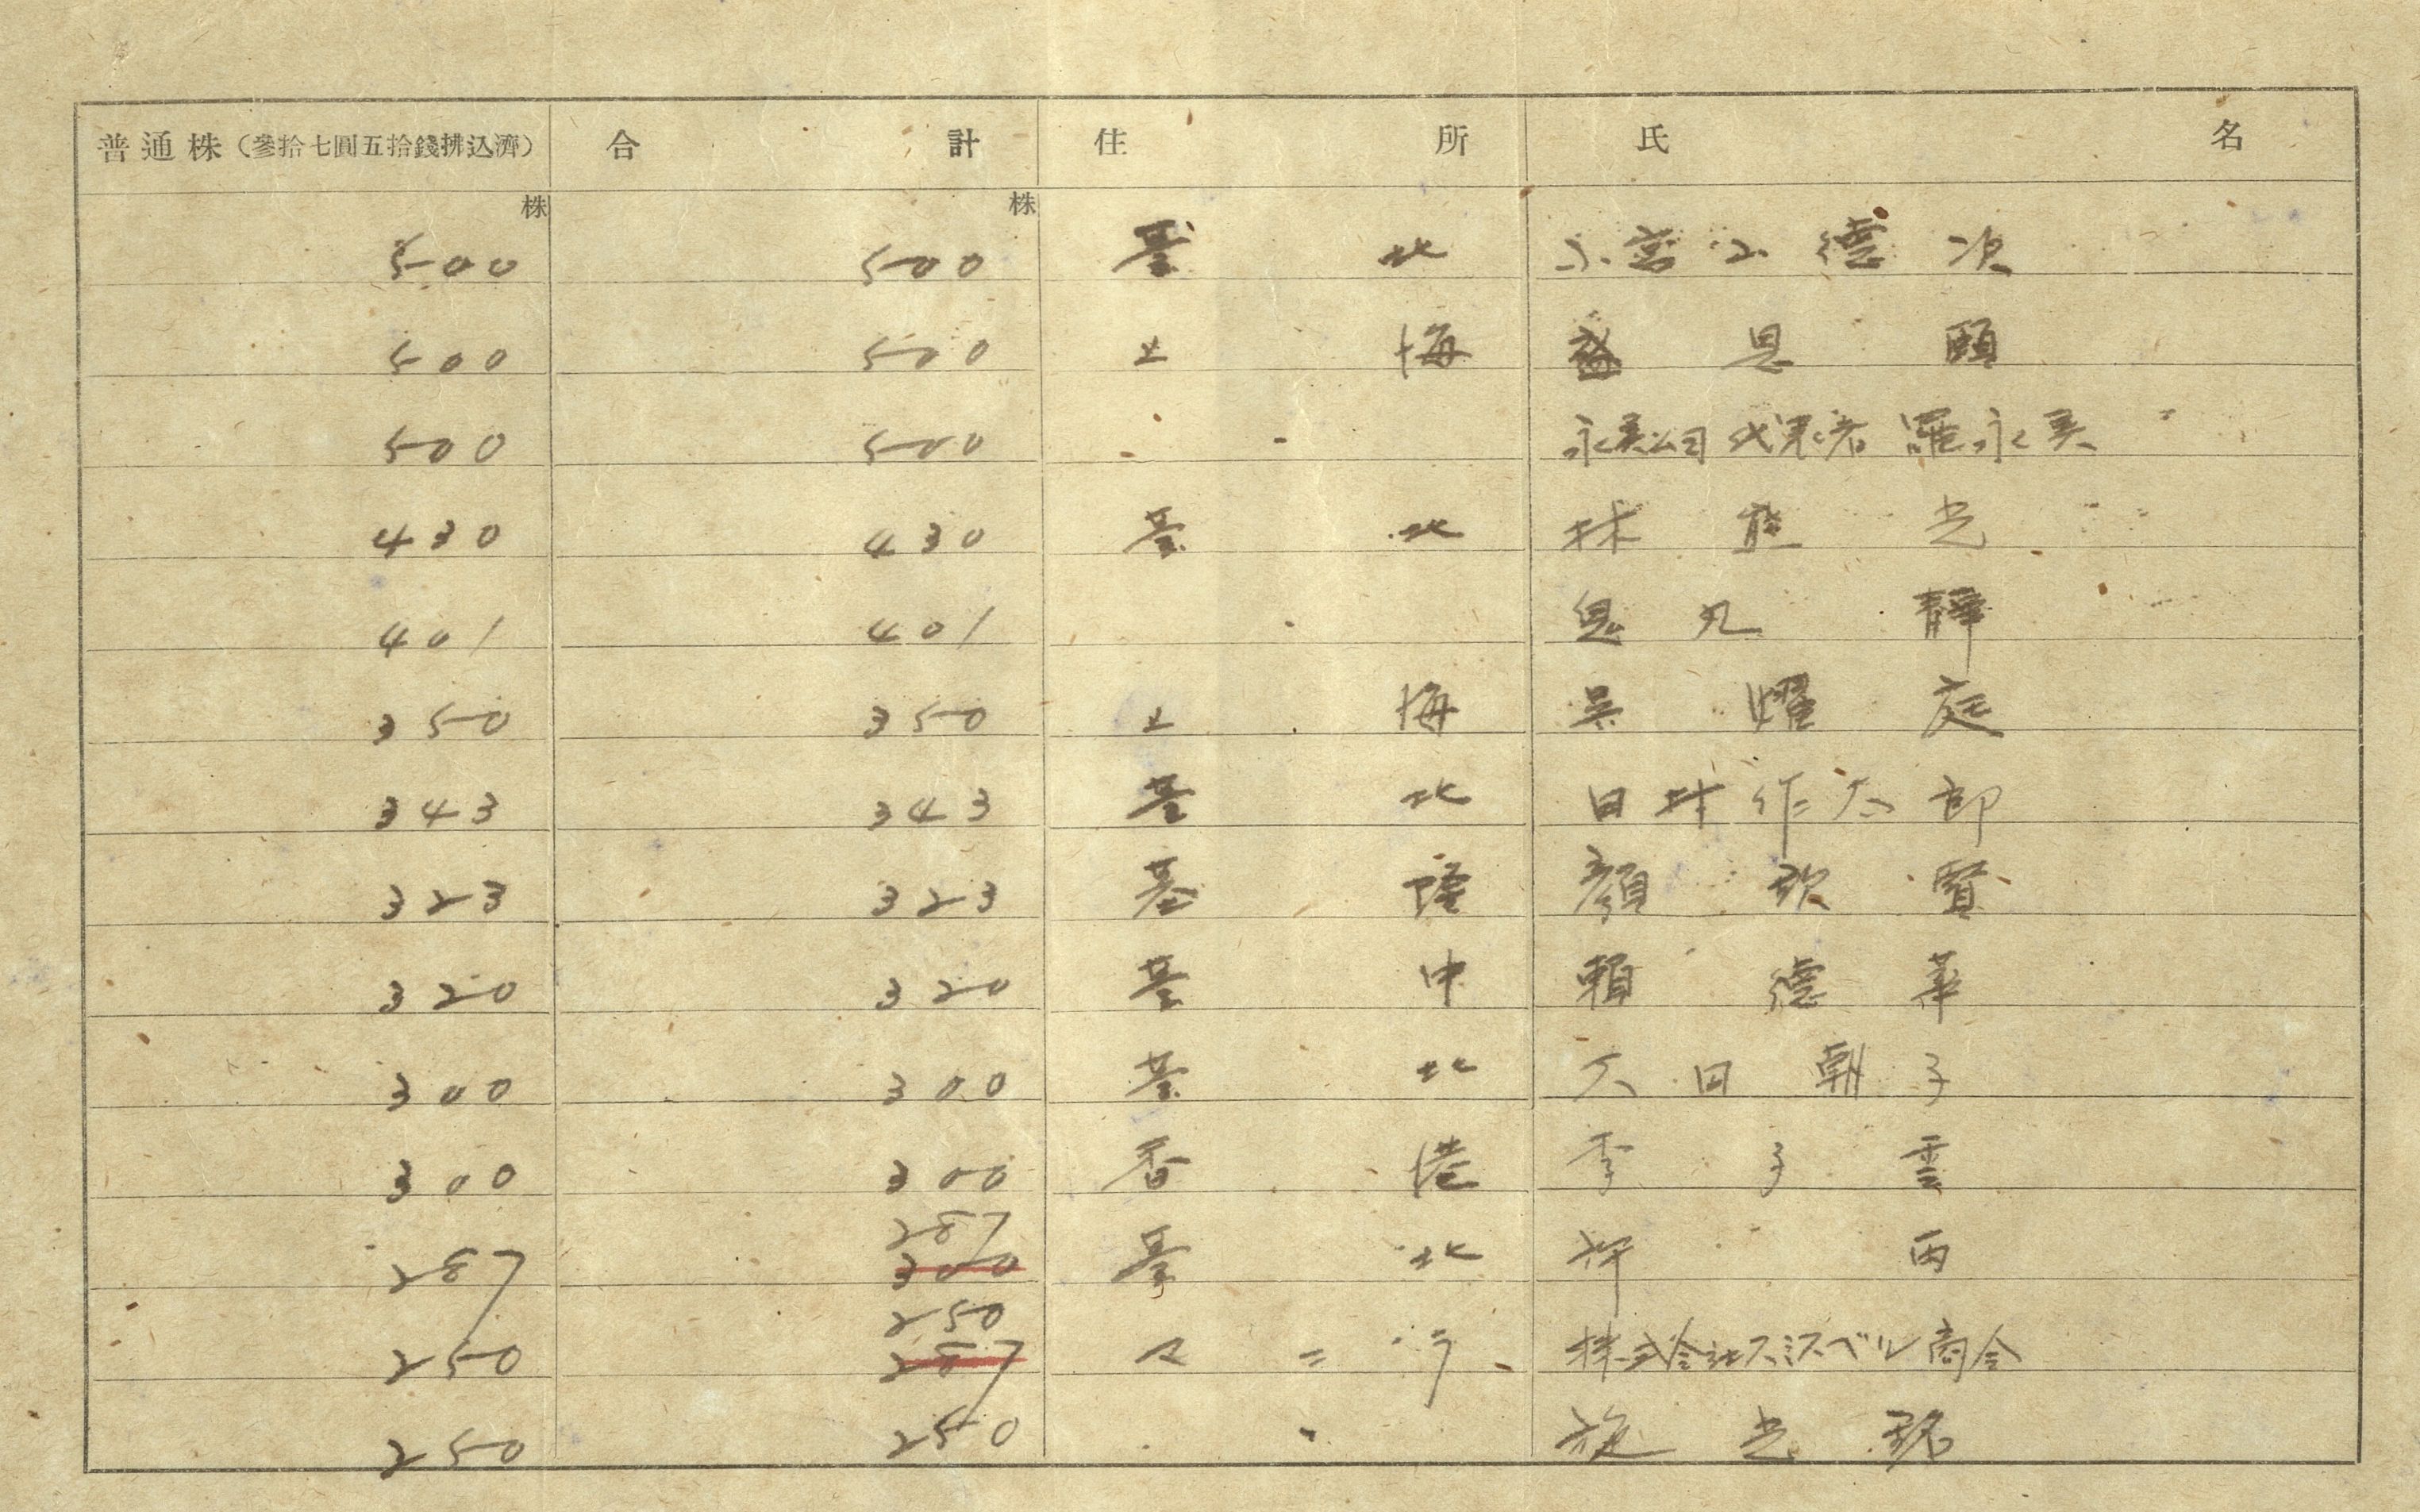 普通株(參拾七圓五拾錢拂込濟) 合計 住所 氏名
株 株
500 500 臺北 小宮山德次
500 500 上海 盛恩頤
500 500 〃 永美公司代表者 羅永美
430 430 臺北 林熊光
401 401 〃 恩丸靜
350 350 上海 吳耀庭
343 343 臺北 田村作太郎
323 323 基隆 顏欽賢
320 320 臺中 賴德華
300 300 臺北 久田朝子
300 300 香港 李子雲
287
287 300 臺北 許丙
250
250 287 マニラ 株式会社スミスベル商会
250 250 〃 施光銘